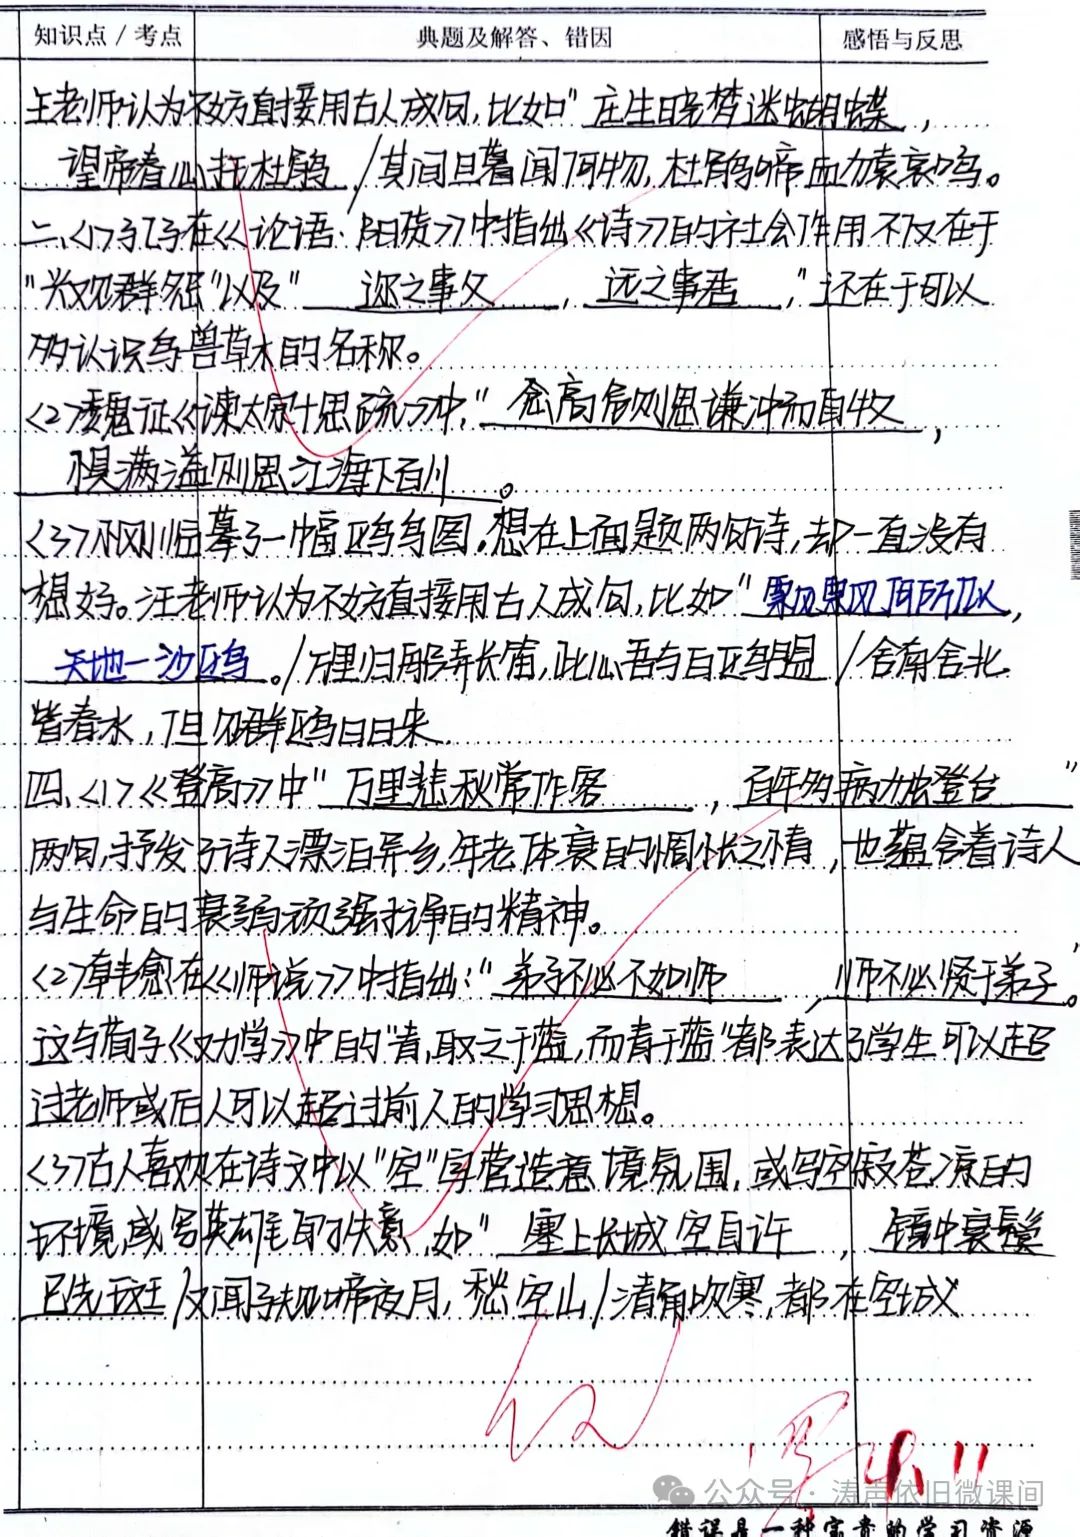 知识点 / 考点 典题及解答、错因 感悟与反思
王老师认为不妨直接用古人成句,比如"庄生晓梦迷蝴蝶,
望帝春心托杜鹃/其间旦暮闻何物,杜鹃啼血猿哀鸣。
二、<1>孔子在《论语·阳货》中指出《诗》的社会作用不仅在于
"兴观群怨"以及"迩之事父,远之事君,"还在于可以
多认识鸟兽草木的名称。
<2>魏征《谏太宗十思疏》中,"念高危则思谦冲而自牧,
惧满溢则思江海下百川。
<3>小刚临摹了一幅鸥鸟图,想在上面题两句诗,却一直没有
想好。汪老师认为不妨直接用古人成句,比如"飘飘何所似,
天地一沙鸥。/万里归船弄长笛,此心吾与白鸥盟/舍南舍北
皆春水,但见群鸥日日来
四、<1>《登高》中"万里悲秋常作客,百年多病独登台"
两句,抒发了诗人漂泊异乡,年老体衰的惆怅之情,也蕴含着诗人
与生命的衰弱顽强抗争的精神。
<2>韩愈在《师说》中指出:"弟子不必不如师,师不必贤于弟子"。
这与荀子《劝学》中的"青,取之于蓝,而青于蓝"都表达了学生可以超
过老师或后人可以超过前人的学习思想。
<3>古人喜欢在诗文中以"空"字营造意境氛围,或写空寂苍凉的
环境,或写英雄的失意,如"塞上长城空自许,镜中衰鬓
已先斑/又闻子规啼夜月,愁空山/清角吹寒,都在空城
公众号·涛声依旧微课间
错误是一种宝贵的学习资源